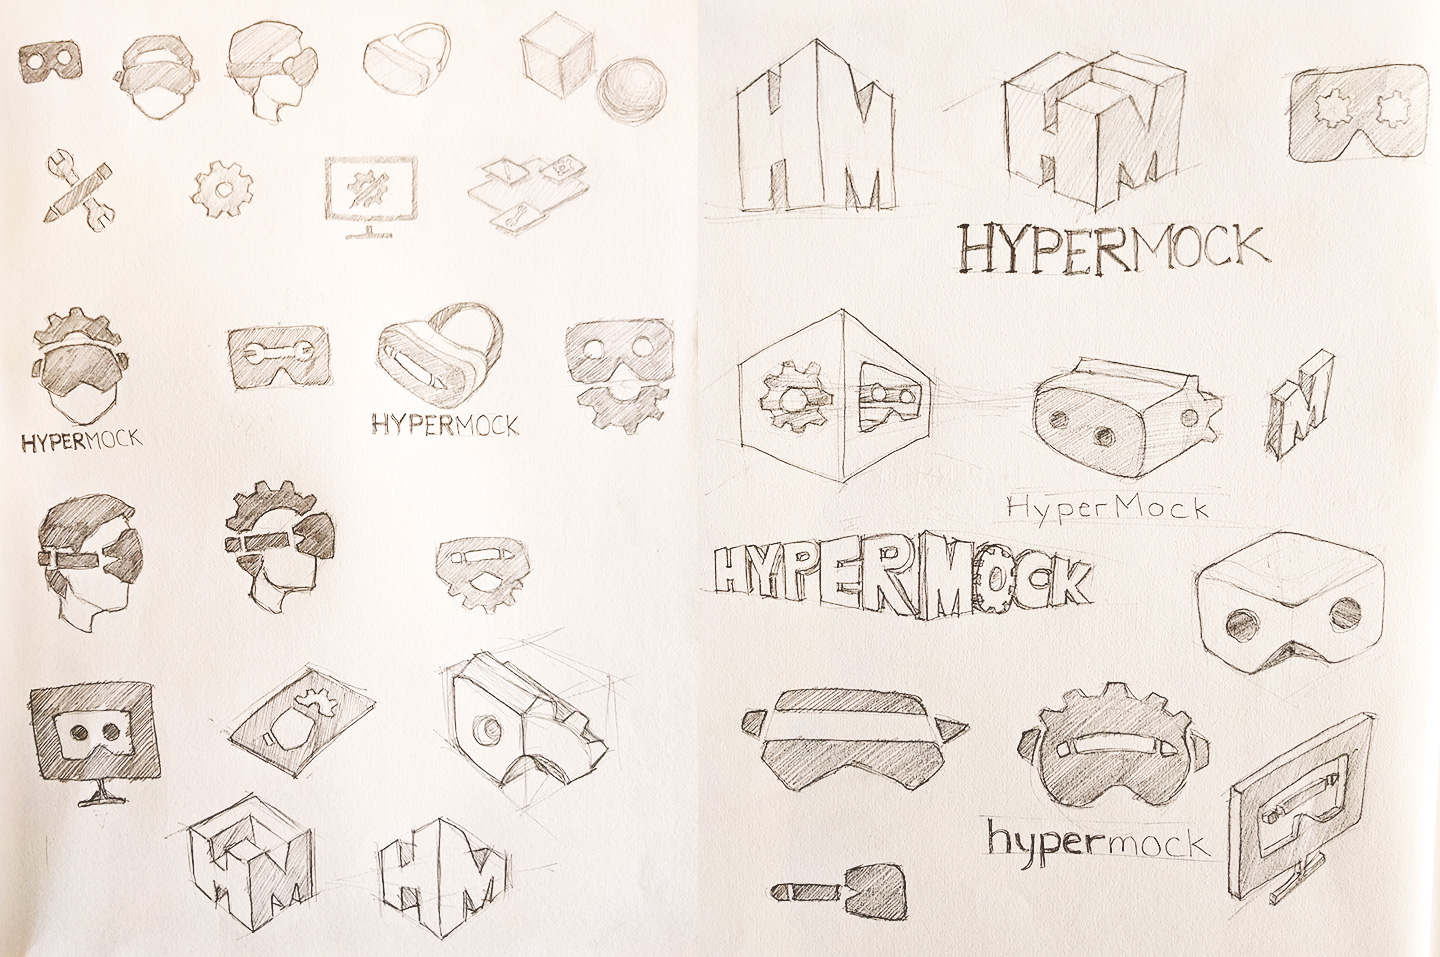 HYPERMOCK
HYPERMOCK
HM
HM
HM
HM
HYPERMOCK
M
HyperMock
HYPERMOCK
hypermock